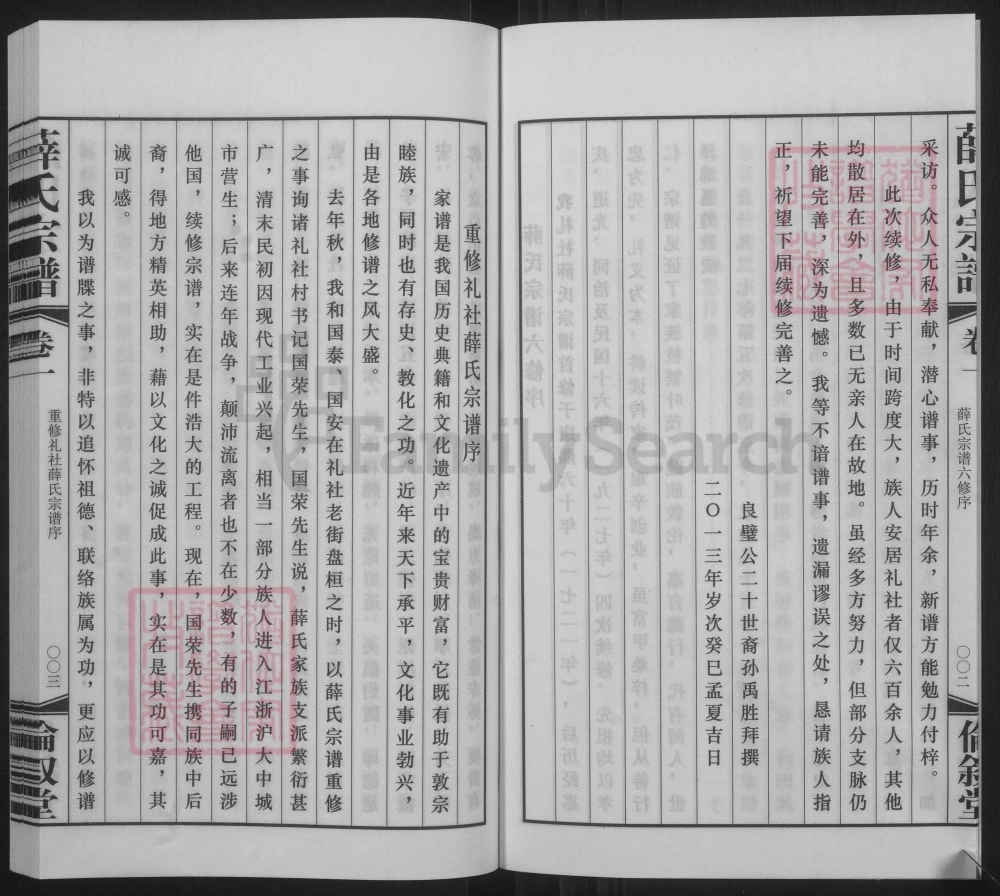 薛氏宗谱
卷一
薛氏宗谱六修序
〇〇二
伦叙堂
采访。众人无私奉献，潜心谱事，历时年余，新谱方能勉力付梓。
此次续修，由于时间跨度大，族人安居礼社者仅六百余人，其他
均散居在外，且多数已无亲人在故地。虽经多方努力，但部分支脉仍
未能完善，深为遗憾。我等不谙谱事，遗漏谬误之处，恳请族人指
正，祈望下届续修完善之。
良璧公二十世裔孙禹胜拜撰
二〇一三年岁次癸巳孟夏吉日
重修礼社薛氏宗谱序
家谱是我国历史典籍和文化遗产中的宝贵财富，它既有助于敦宗
睦族，同时也有存史，教化之功。近年来天下承平，文化事业勃兴，
由是各地修谱之风大盛。
去年秋，我和国泰、国安在礼社老街盘桓之时，以薛氏宗谱重修
之事询诸礼社村书记国荣先生，国荣先生说，薛氏家族支派繁衍甚
广，清末民初因现代工业兴起，相当一部分族人进入江浙沪大中城
市营生；后来连年战争，颠沛流离者也不在少数，有的子嗣已远涉
他国，续修宗谱，实在是件浩大的工程。现在，国荣先生携同族中后
裔，得地方精英相助，藉以文化之诚促成此事，实在是其功可嘉，其
诚可感。
我以为谱牒之事，非特以追怀祖德、联络族属为功，更应以修谱
薛氏宗谱
卷一
重修礼社薛氏宗谱序
〇〇三
伦叙堂
FamilySearch